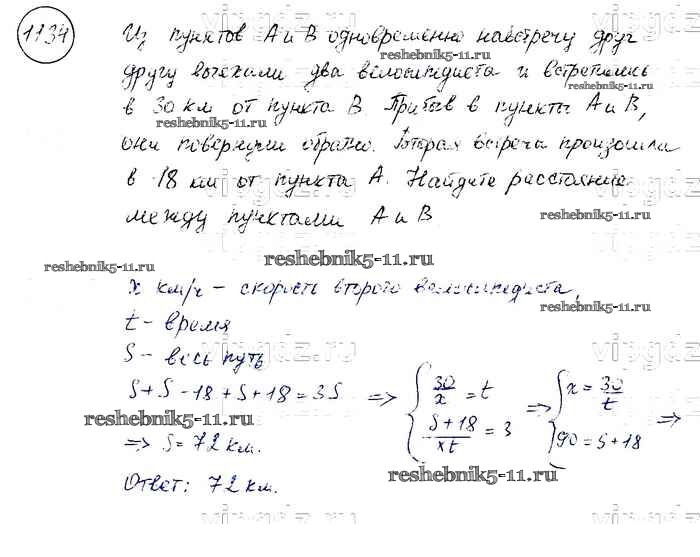 1134
Из пунктов А и В одновременно навстречу друг
reshebnik5-11.ru
другу выехали два велосипедиста и встретились
reshebnik5-11.ru
в 30 км от пункта В. Прибыв в пункты А и В,
reshebnik5-11.ru
они повернули обратно. Вторая встреча произошла
reshebnik5-11.ru
в 18 км от пункта А. Найдите расстояние
reshebnik5-11.ru
между пунктами А и В
reshebnik5-11.ru
reshebnik5-11.ru
vipgdz.ru
x км/ч – скорость второго велосипедиста,
reshebnik5-11.ru
t – время
vipgdz.ru vipgdz.ru
S – весь путь
S + S - 18 + S + 18 = 3S => { 30/x = t ; S+18/xt = 3 => { x = 30/t ; 90 = S + 18 =>
reshebnik5-11.ru
=> S = 72 км.
reshebnik5-11.ru
Ответ: 72 км.
vipgdz.ru vipgdz.ru